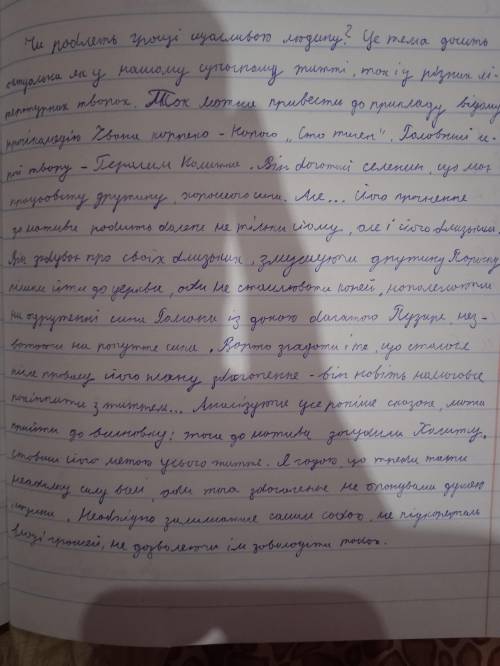 Чи роблять гроші щасливою людину? Це тема досить
актуальна як у нашому сучасному житті, так і у різних лі-
тературних творах. Так можна привести до прикладу відому
трагікомедію Івана Карпенко-Карого "Сто тисяч". Головний ге-
рой твору - Герасим Калитка. Він багатий селянин, що має
працьовиту дружину, хорошого сина. Але... його прагнення
до наживи робить боляче не тільки йому, але і його близьким.
Він забуває про своїх близьких, змушуючи дружину Параску
пішки йти до церкви, аби не стомлювати коней, наполягаючи
на одруженні сина Романа із донькою багатого Пузиря, нез-
важаючи на почуття сина. Варто згадати і те, що сталося
після провалу його плану збагачення - він навіть намагався
покінчити з життям... Аналізуючи усе раніше сказане, можна
прийти до висновку: жага до наживи Калитку,
ставши його метою усього життя. Я гадаю, що треба мати
неабияку силу волі, аби жага збагачення не опанувала душею
людини. Необхідно залишатися самим собою, не підкорятись
владі грошей, не дозволяючи їм заволодіти тобою.